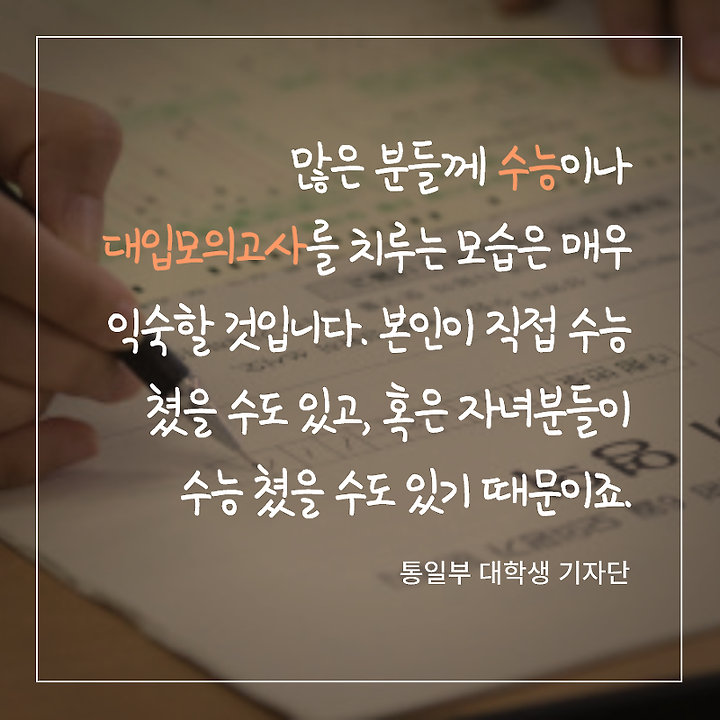 많은 분들께 수능이나
대입모의고사를 치루는 모습은 매우
익숙할 것입니다. 본인이 직접 수능
쳤을 수도 있고, 혹은 자녀분들이
수능 쳤을 수도 있기 때문이죠.
통일부 대학생 기자단